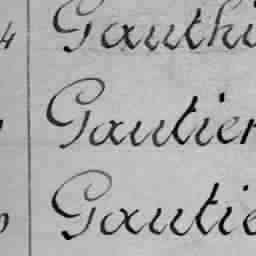 4 Gauthi
Gautier
Gautie